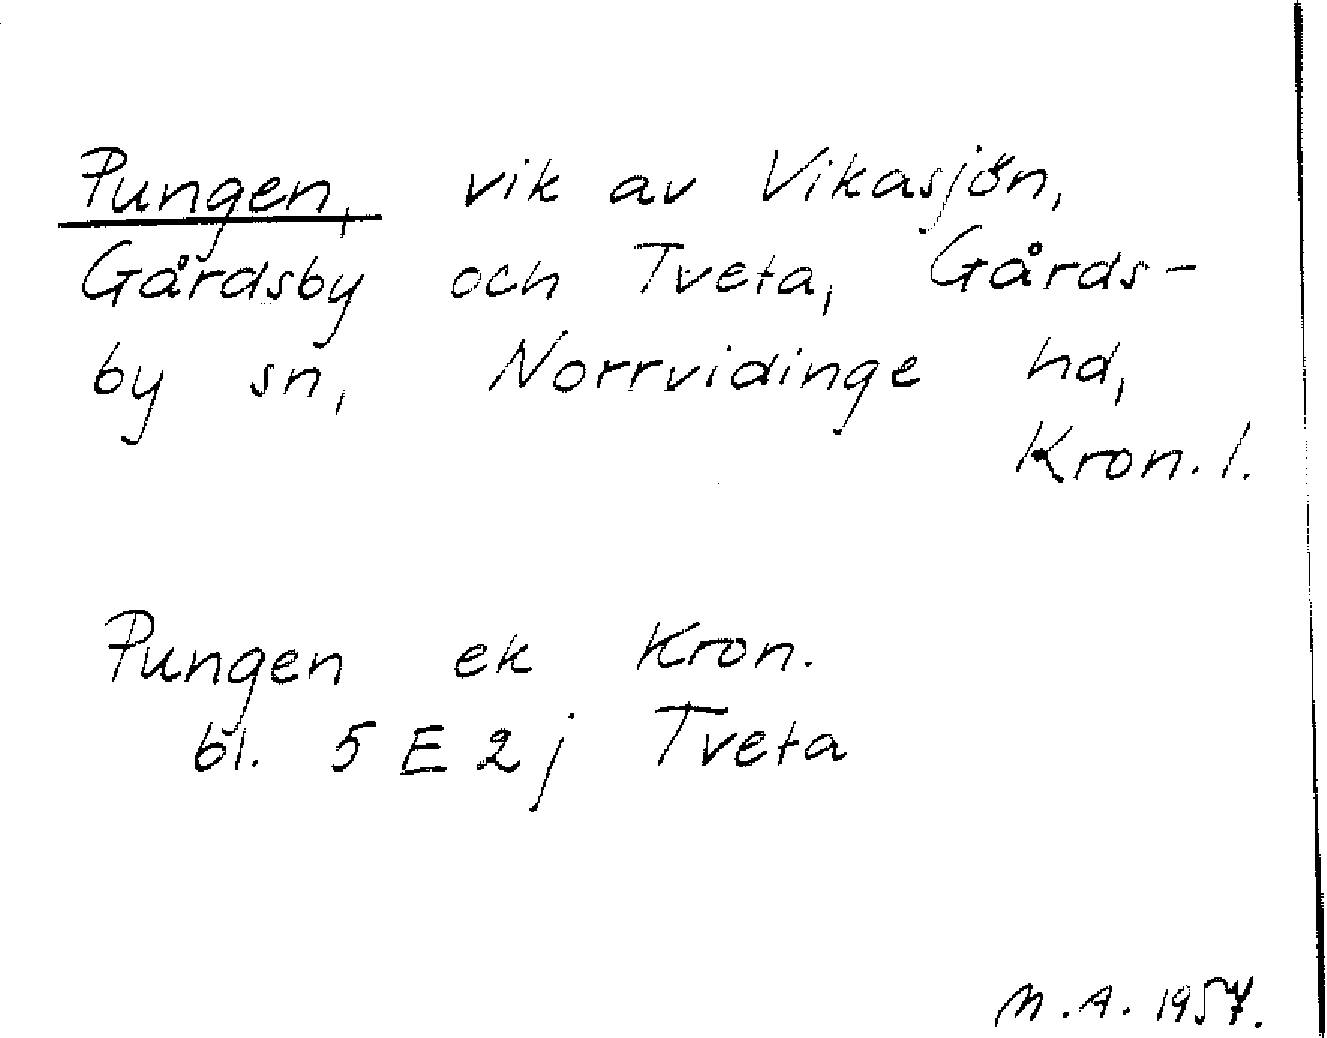 Pungen, vik av Vikasjön,
Gårdsby och Tveta, Gårds-
by sn, Norrvidinge hd,
Kron. l.
Pungen ek Kron.
bl. 5 E 2 j Tveta
M. A. 1957.